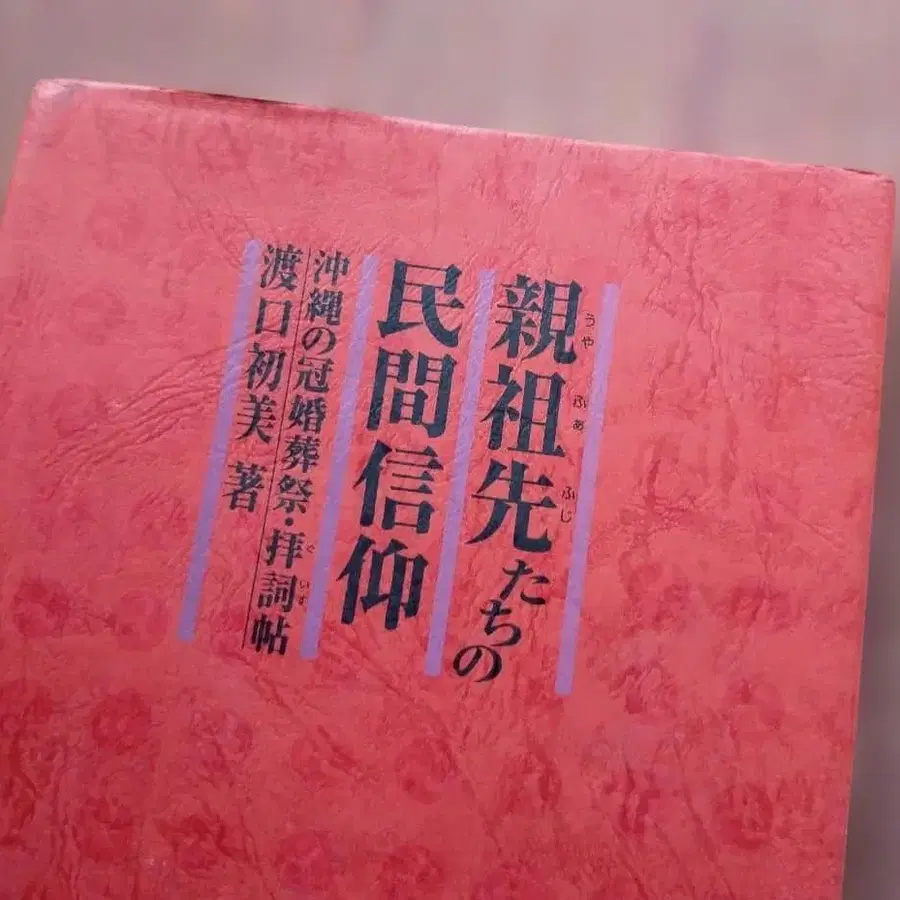 親祖先たちの
うやふぁふじ
民間信仰
沖縄の冠婚葬祭・拝詞帖
ぐいす
渡口初美 著